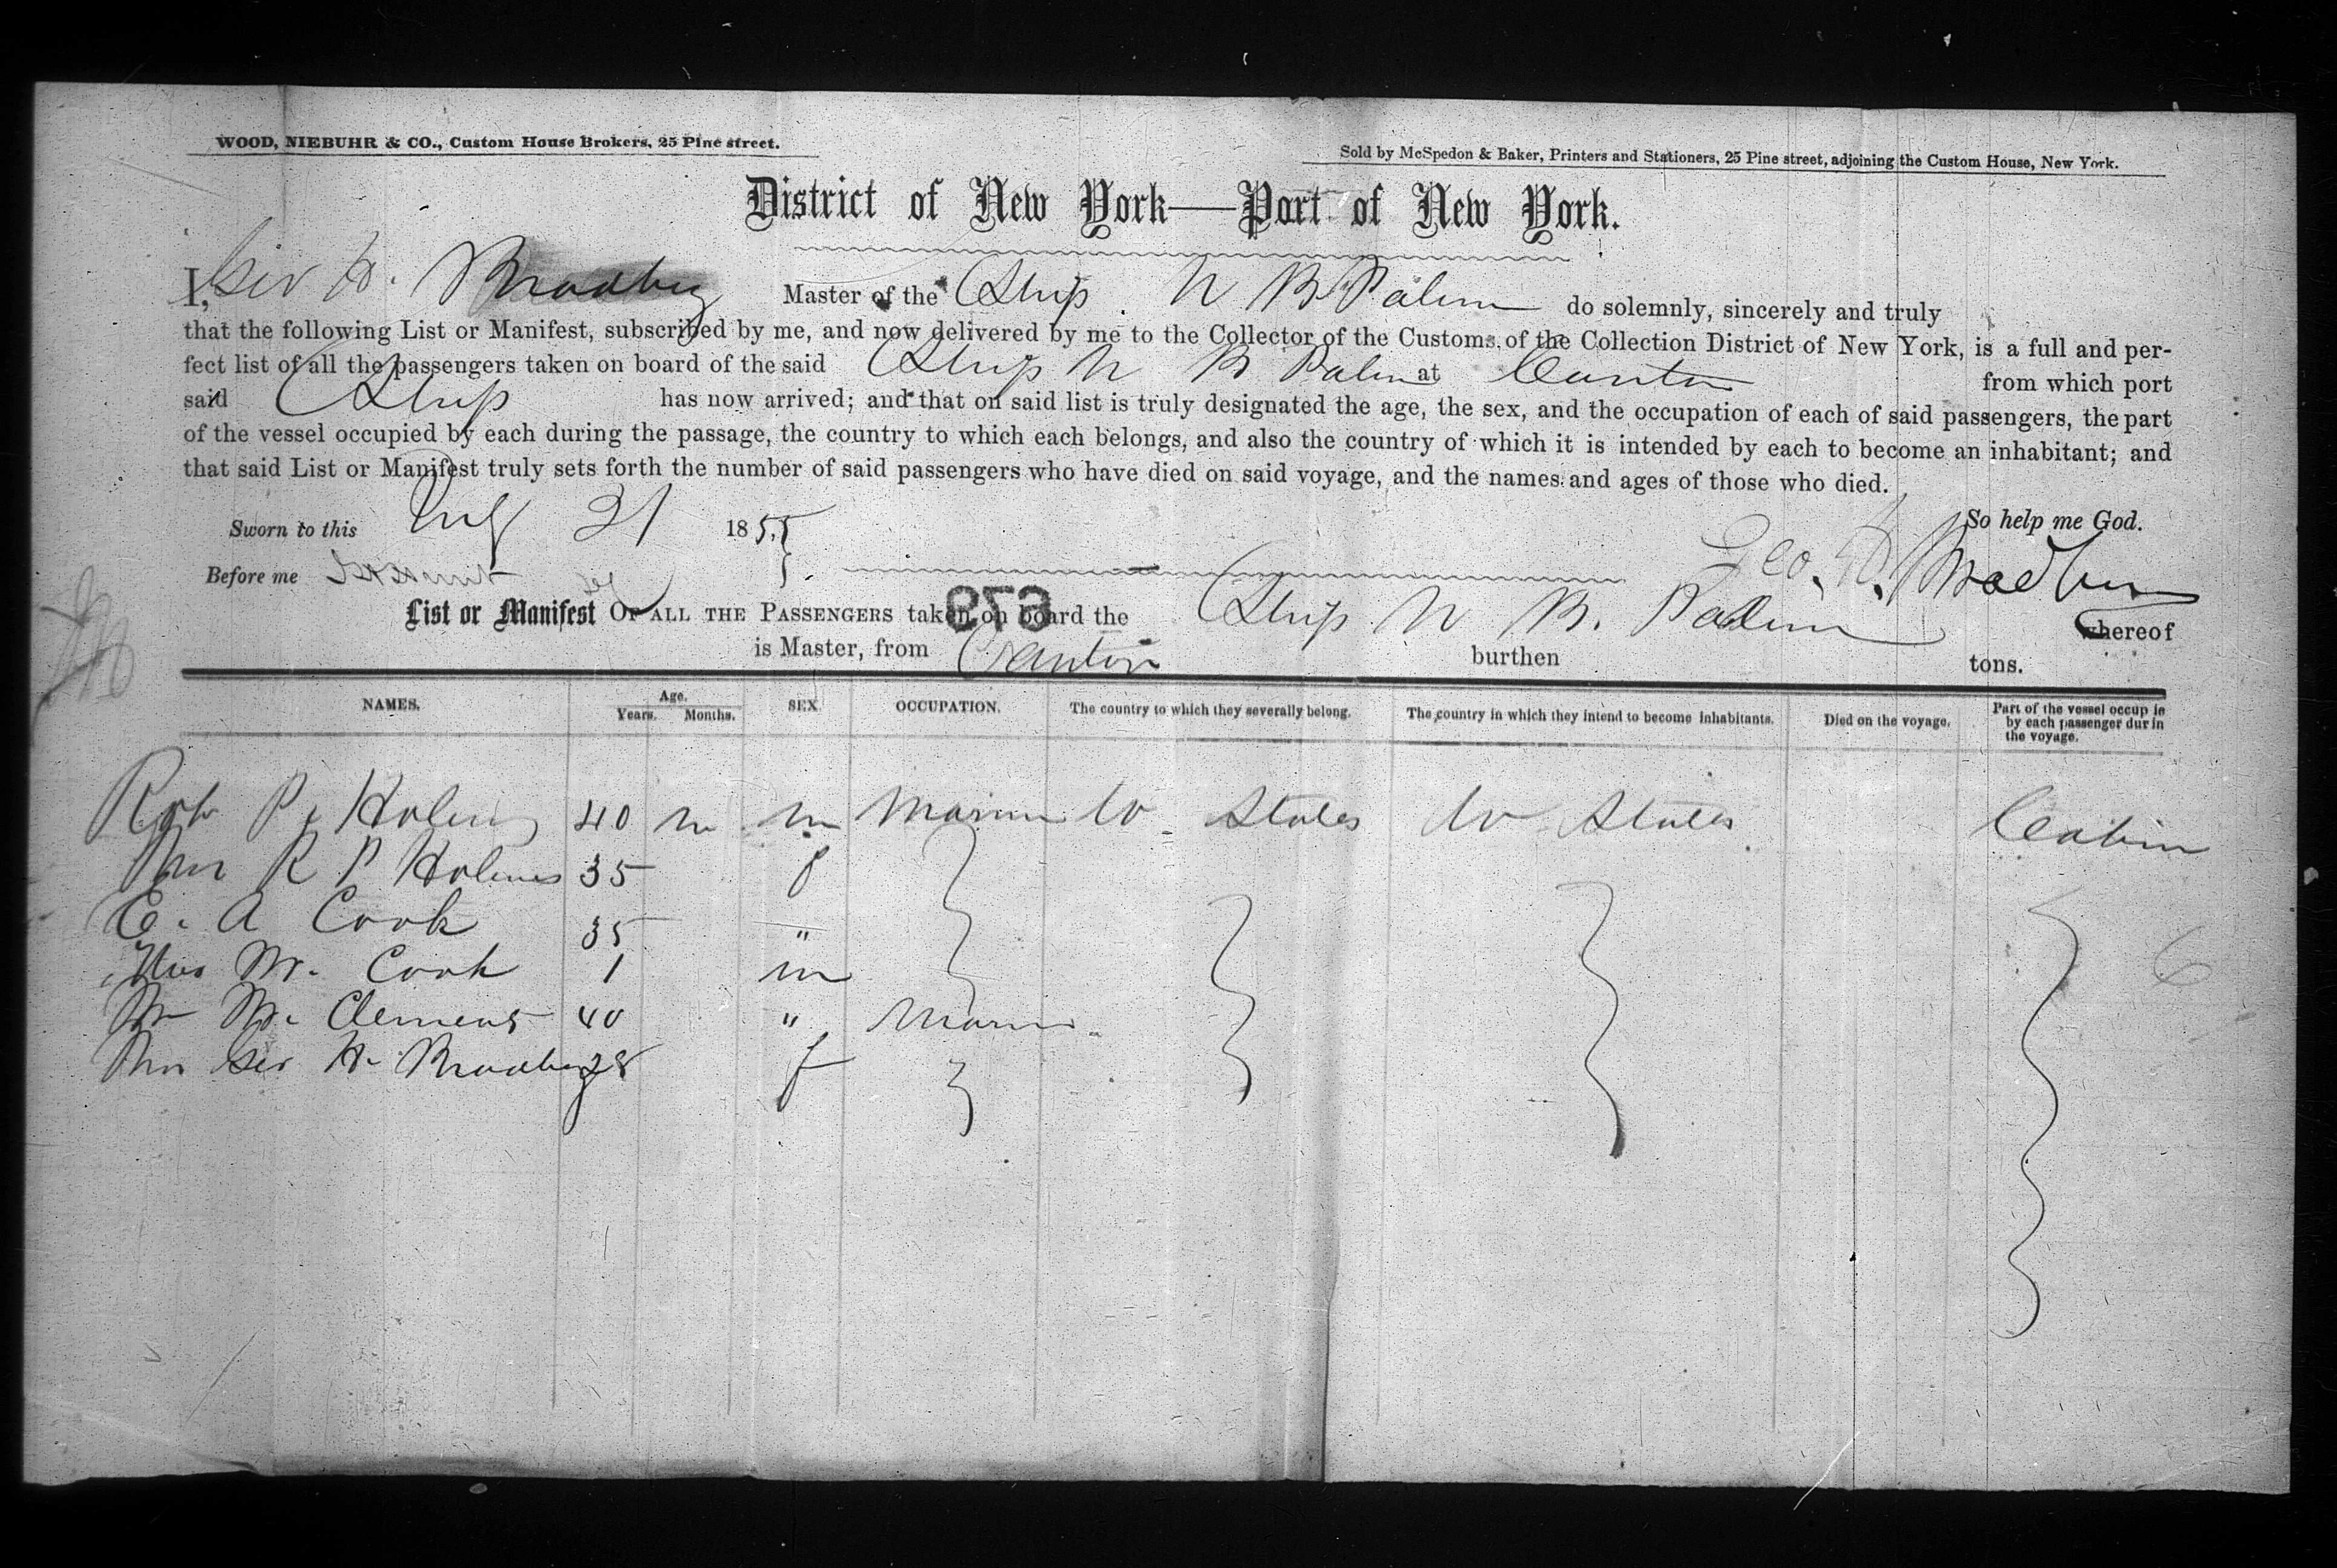 WOOD, NIEBUHR & CO., Custom House Brokers, 25 Pine street.
Sold by McSpedon & Baker, Printers and Stationers, 25 Pine street, adjoining the Custom House, New York.
District of New York—Port of New York.
I, Geo H. Master of the Ship N B Palmer do solemnly, sincerely and truly
that the following List or Manifest, subscribed by me, and now delivered by me to the Collector of the Customs of the Collection District of New York, is a full and per-
fect list of all the passengers taken on board of the said Ship N B Palmer at Canton from which port
said Ship has now arrived; and that on said list is truly designated the age, the sex, and the occupation of each of said passengers, the part
of the vessel occupied by each during the passage, the country to which each belongs, and also the country of which it is intended by each to become an inhabitant; and
that said List or Manifest truly sets forth the number of said passengers who have died on said voyage, and the names and ages of those who died.
So help me God.
Sworn to this 21 1855
Geo.
Before me
873
List or Manifest OF ALL THE PASSENGERS taken on board the Ship N B. Palmer whereof
is Master, from Canton burthen tons.
NAMES. Age. Years. Months. SEX. OCCUPATION. The country to which they severally belong. The country in which they intend to become inhabitants. Died on the voyage. Part of the vessel occup ie by each passenger dur in the voyage.
P. Holmes 40 m m U States U States Cabin
Mrs R P Holmes 35 f
E. A Cook 35 "
W. Cook 1 m
Clemens 40 "
Mrs Geo H. 28 f
6